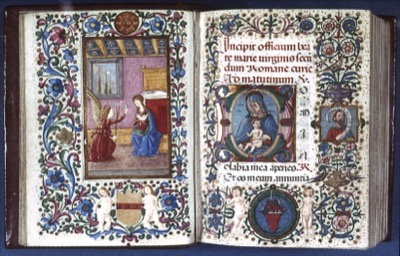 Incipit officium bea
te marie virginis secu
dum Romane curie
Ad matutinum. V.
D
o labia mea aperies. R.
Et os meum annuntia